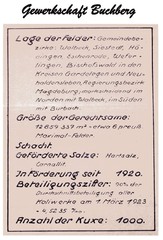 Gewerkschaft Buchberg
Lage der Felder: Gemeindebe-
zirke: Walbeck, Siestedt, Hö-
singen, Eschenrode, Wefer-
lingen, Bischofswald in den
Kreisen Gardelegen und Neu-
haldensleben, Regierungsbezirk
Magdeburg, markscheidend im
Norden mit Walbeck, im Süden
mit
Größe der Gerechtsame:
12 659 337 m² - etwa 6 preuß.
Maximal-Felder.
Schacht.
Geförderte Salze: Hartsalz,
Carnallit.
In Förderung seit 1920.
Beteiligungsziffer:
Durchschnittsbeteiligung aller
Kaliwerke am 1. März 1923
Anzahl der Kuxe: 1000.